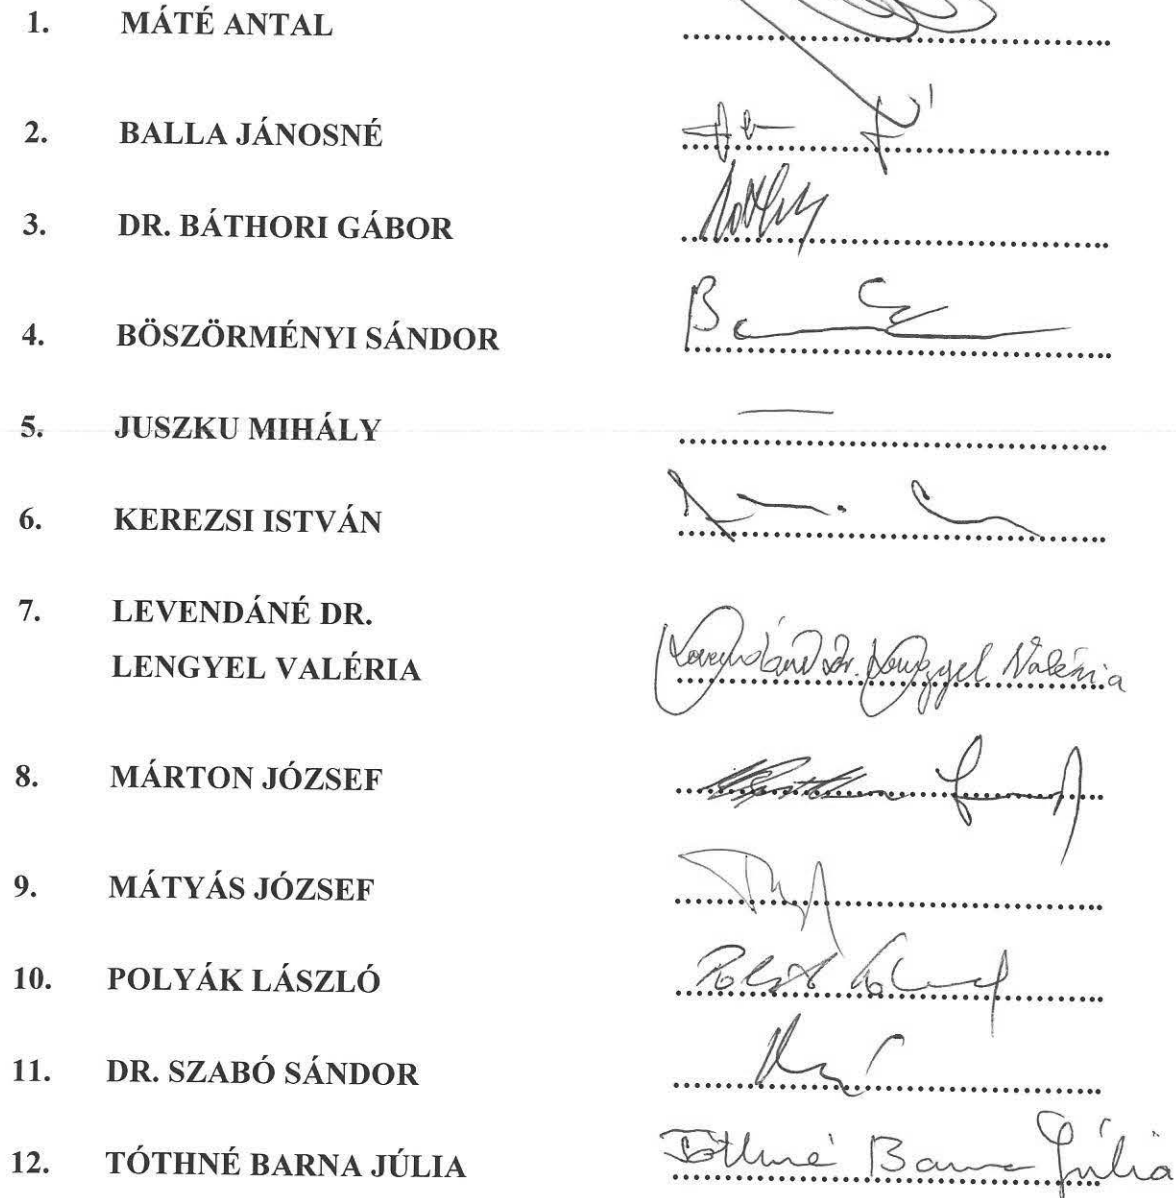 1. MÁTÉ ANTAL ....................................................
2. BALLA JÁNOSNÉ ....................................................
3. DR. BÁTHORI GÁBOR ....................................................
4. BÖSZÖRMÉNYI SÁNDOR ....................................................
5. JUSZKU MIHÁLY — ....................................................
6. KEREZSI ISTVÁN ....................................................
7. LEVENDÁNÉ DR.
LENGYEL VALÉRIA Levendáné Dr. Lengyel Valéria
8. MÁRTON JÓZSEF ....................................................
9. MÁTYÁS JÓZSEF ....................................................
10. POLYÁK LÁSZLÓ ....................................................
11. DR. SZABÓ SÁNDOR ....................................................
12. TÓTHNÉ BARNA JÚLIA Tóthné Barna Júlia